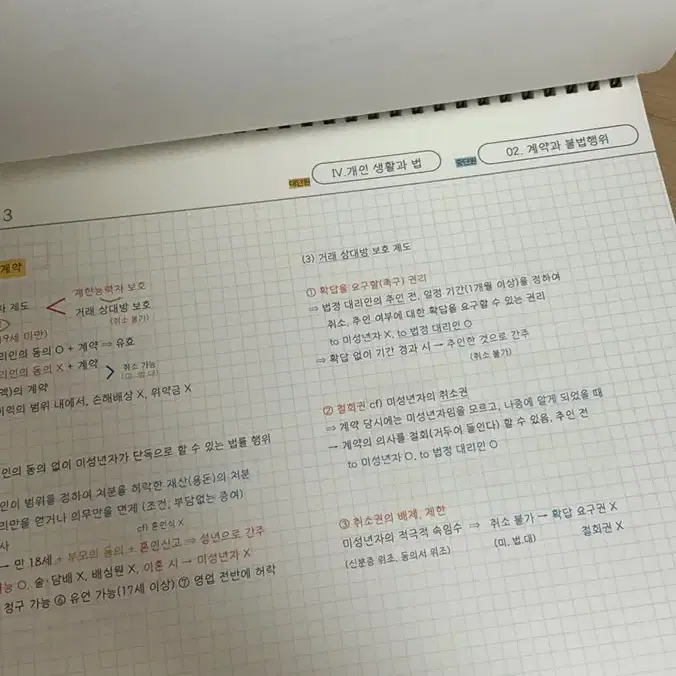 3
대단원 IV.개인 생활과 법
중단원 02. 계약과 불법행위
계약
제한능력자 보호
자 제도 < 거래 상대방 보호
(취소 불가)
19세 미만)
리인의 동의 O + 계약 ⇒ 유효
리인의 동의 X + 계약 > 취소 가능
(미·법·대)
액)의 계약
이익의 범위 내에서, 손해배상 X, 위약금 X
인의 동의 없이 미성년자가 단독으로 할 수 있는 법률 행위
인이 범위를 정하여 처분을 허락한 재산(용돈)의 처분
리만을 얻거나 의무만을 면제 (조건, 부담없는 증여)
사 cf) 혼인식 X
→ 만 18세 + 부모의 동의 + 혼인신고 ⇒ 성년으로 간주
가능 O, 술·담배 X, 배심원 X, 이혼 시 → 미성년자 X
청구 가능 ⑥ 유언 가능(17세 이상) ⑦ 영업 전반에 허락
(3) 거래 상대방 보호 제도
① 확답을 요구할(촉구) 권리
⇒ 법정 대리인의 추인 전, 일정 기간(1개월 이상)을 정하여
취소, 추인 여부에 대한 확답을 요구할 수 있는 권리
to 미성년자 X, to 법정 대리인 O
⇒ 확답 없이 기간 경과 시 → 추인한 것으로 간주
(취소 불가)
② 철회권 cf) 미성년자의 취소권
⇒ 계약 당시에는 미성년자임을 모르고, 나중에 알게 되었을 때
→ 계약의 의사를 철회(거두어 들인다) 할 수 있음, 추인 전
to 미성년자 O, to 법정 대리인 O
③ 취소권의 배제, 제한
미성년자의 적극적 속임수 ⇒ 취소 불가 → 확답 요구권 X
(신분증 위조, 동의서 위조) (미, 법·대) 철회권 X